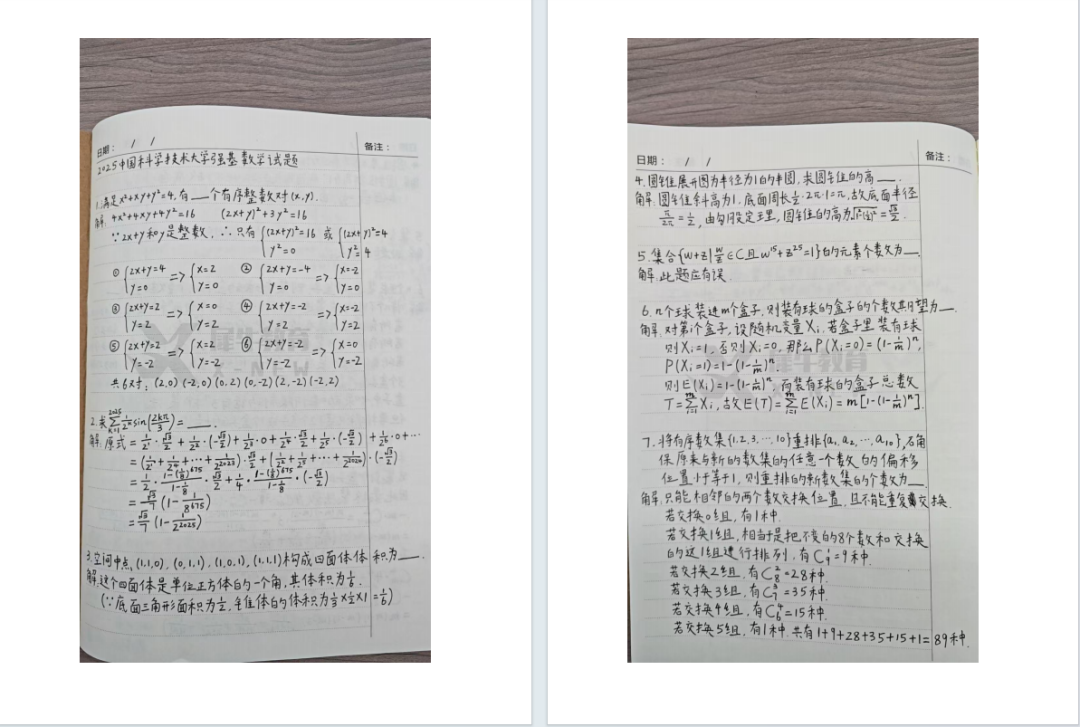 日期： / /
备注：
2025中国科学技术大学强基数学试题
1.满足x²+xy+y²=4,有___个有序整数对(x,y).
解: 4x²+4xy+4y²=16 (2x+y)²+3y²=16
∵2x+y和y是整数，∴只有{(2x+y)²=16 y²=0 或{(2x+y)²=4 y²=4
①{2x+y=4 y=0 =>{x=2 y=0 ②{2x+y=-4 y=0 =>{x=-2 y=0
③{2x+y=2 y=2 =>{x=0 y=2 ④{2x+y=-2 y=2 =>{x=-2 y=2
⑤{2x+y=2 y=-2 =>{x=2 y=-2 ⑥{2x+y=-2 y=-2 =>{x=0 y=-2
共6对: (2,0) (-2,0) (0,2) (0,-2) (2,-2) (-2,2)
2.求∑_{k=1}^{2025} 1/2^k sin(2kπ/3)=___.
解:原式=1/2¹·√3/2+1/2²·(-√3/2)+1/2³·0+1/2⁴·√3/2+1/2⁵·(-√3/2)+1/2⁶·0+⋯
=(1/2¹+1/2⁴+⋯+1/2²⁰²³)·√3/2+(1/2²+1/2⁵+⋯+1/2²⁰²⁴)·(-√3/2)
=1/2·(1-(1/8)⁶⁷⁵)/(1-1/8)·√3/2+1/4·(1-(1/8)⁶⁷⁵)/(1-1/8)·(-√3/2)
=√3/7(1-1/8⁶⁷⁵)
=√3/7(1-1/2²⁰²⁵)
3.空间中点,(1,1,0),(0,1,1),(1,0,1),(1,1,1)构成四面体体积为___.
解,这个四面体是单位正方体的一个角,其体积为1/6.
(∵底面三角形面积为1/2,锥体的体积为1/3×1/2×1=1/6)
日期： / /
备注：
4.圆锥展开图为半径为1的半圆,求圆锥的高___.
解:圆锥斜高为1,底面周长1/2·2π·1=π,故底面半径
π/2π=1/2,由勾股定理,圆锥的高为√(1²-(1/2)²)=√3/2.
5.集合{w+z|w/z∈C且w¹⁵+z²⁵=1}的元素个数为___
解:此题应有误.
6.n个球装进m个盒子,则装有球的盒子的个数其期望为___.
解:对第i个盒子,设随机变量Xi,若盒子里装有球
则Xi=1,否则Xi=0,那么P(Xi=0)=(1-1/m)ⁿ,
P(Xi=1)=1-(1-1/m)ⁿ.
则E(Xi)=1-(1-1/m)ⁿ,而装有球的盒子总数
T=∑_{i=1}^{m}Xi,故E(T)=∑_{i=1}^{m}E(Xi)=m[1-(1-1/m)ⁿ].
7.将有序数集{1,2,3,⋯,10}重排{a₁,a₂,⋯,a₁₀},石角
保原来与新的数集的任意一个数的偏移
位置小于等于1,则重排的新数集的个数为___
解,只能相邻的两个数交换位置,且不能重复交换.
若交换0组,有1种.
若交换1组,相当于是把不变的8个数和交换
的这1组进行排列,有C₉¹=9种.
若交换2组,有C₈²=28种.
若交换3组,有C₇³=35种.
若交换4组,有C₆⁴=15种.
若交换5组,有1种.共有1+9+28+35+15+1=89种.